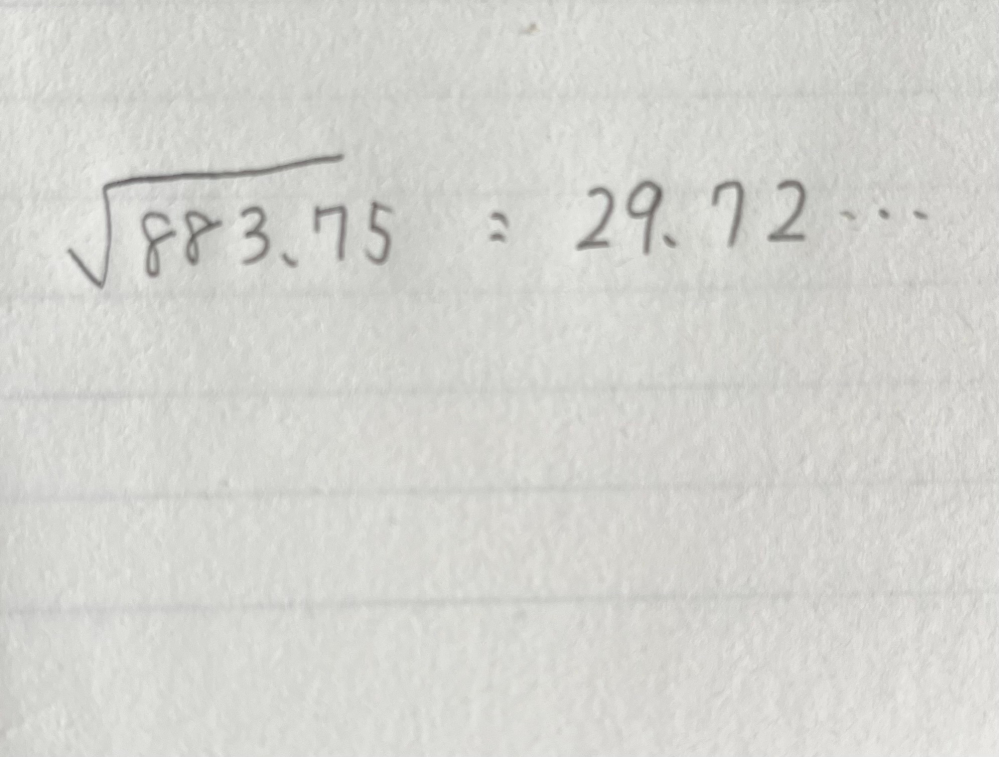 √883.75 = 29.72...